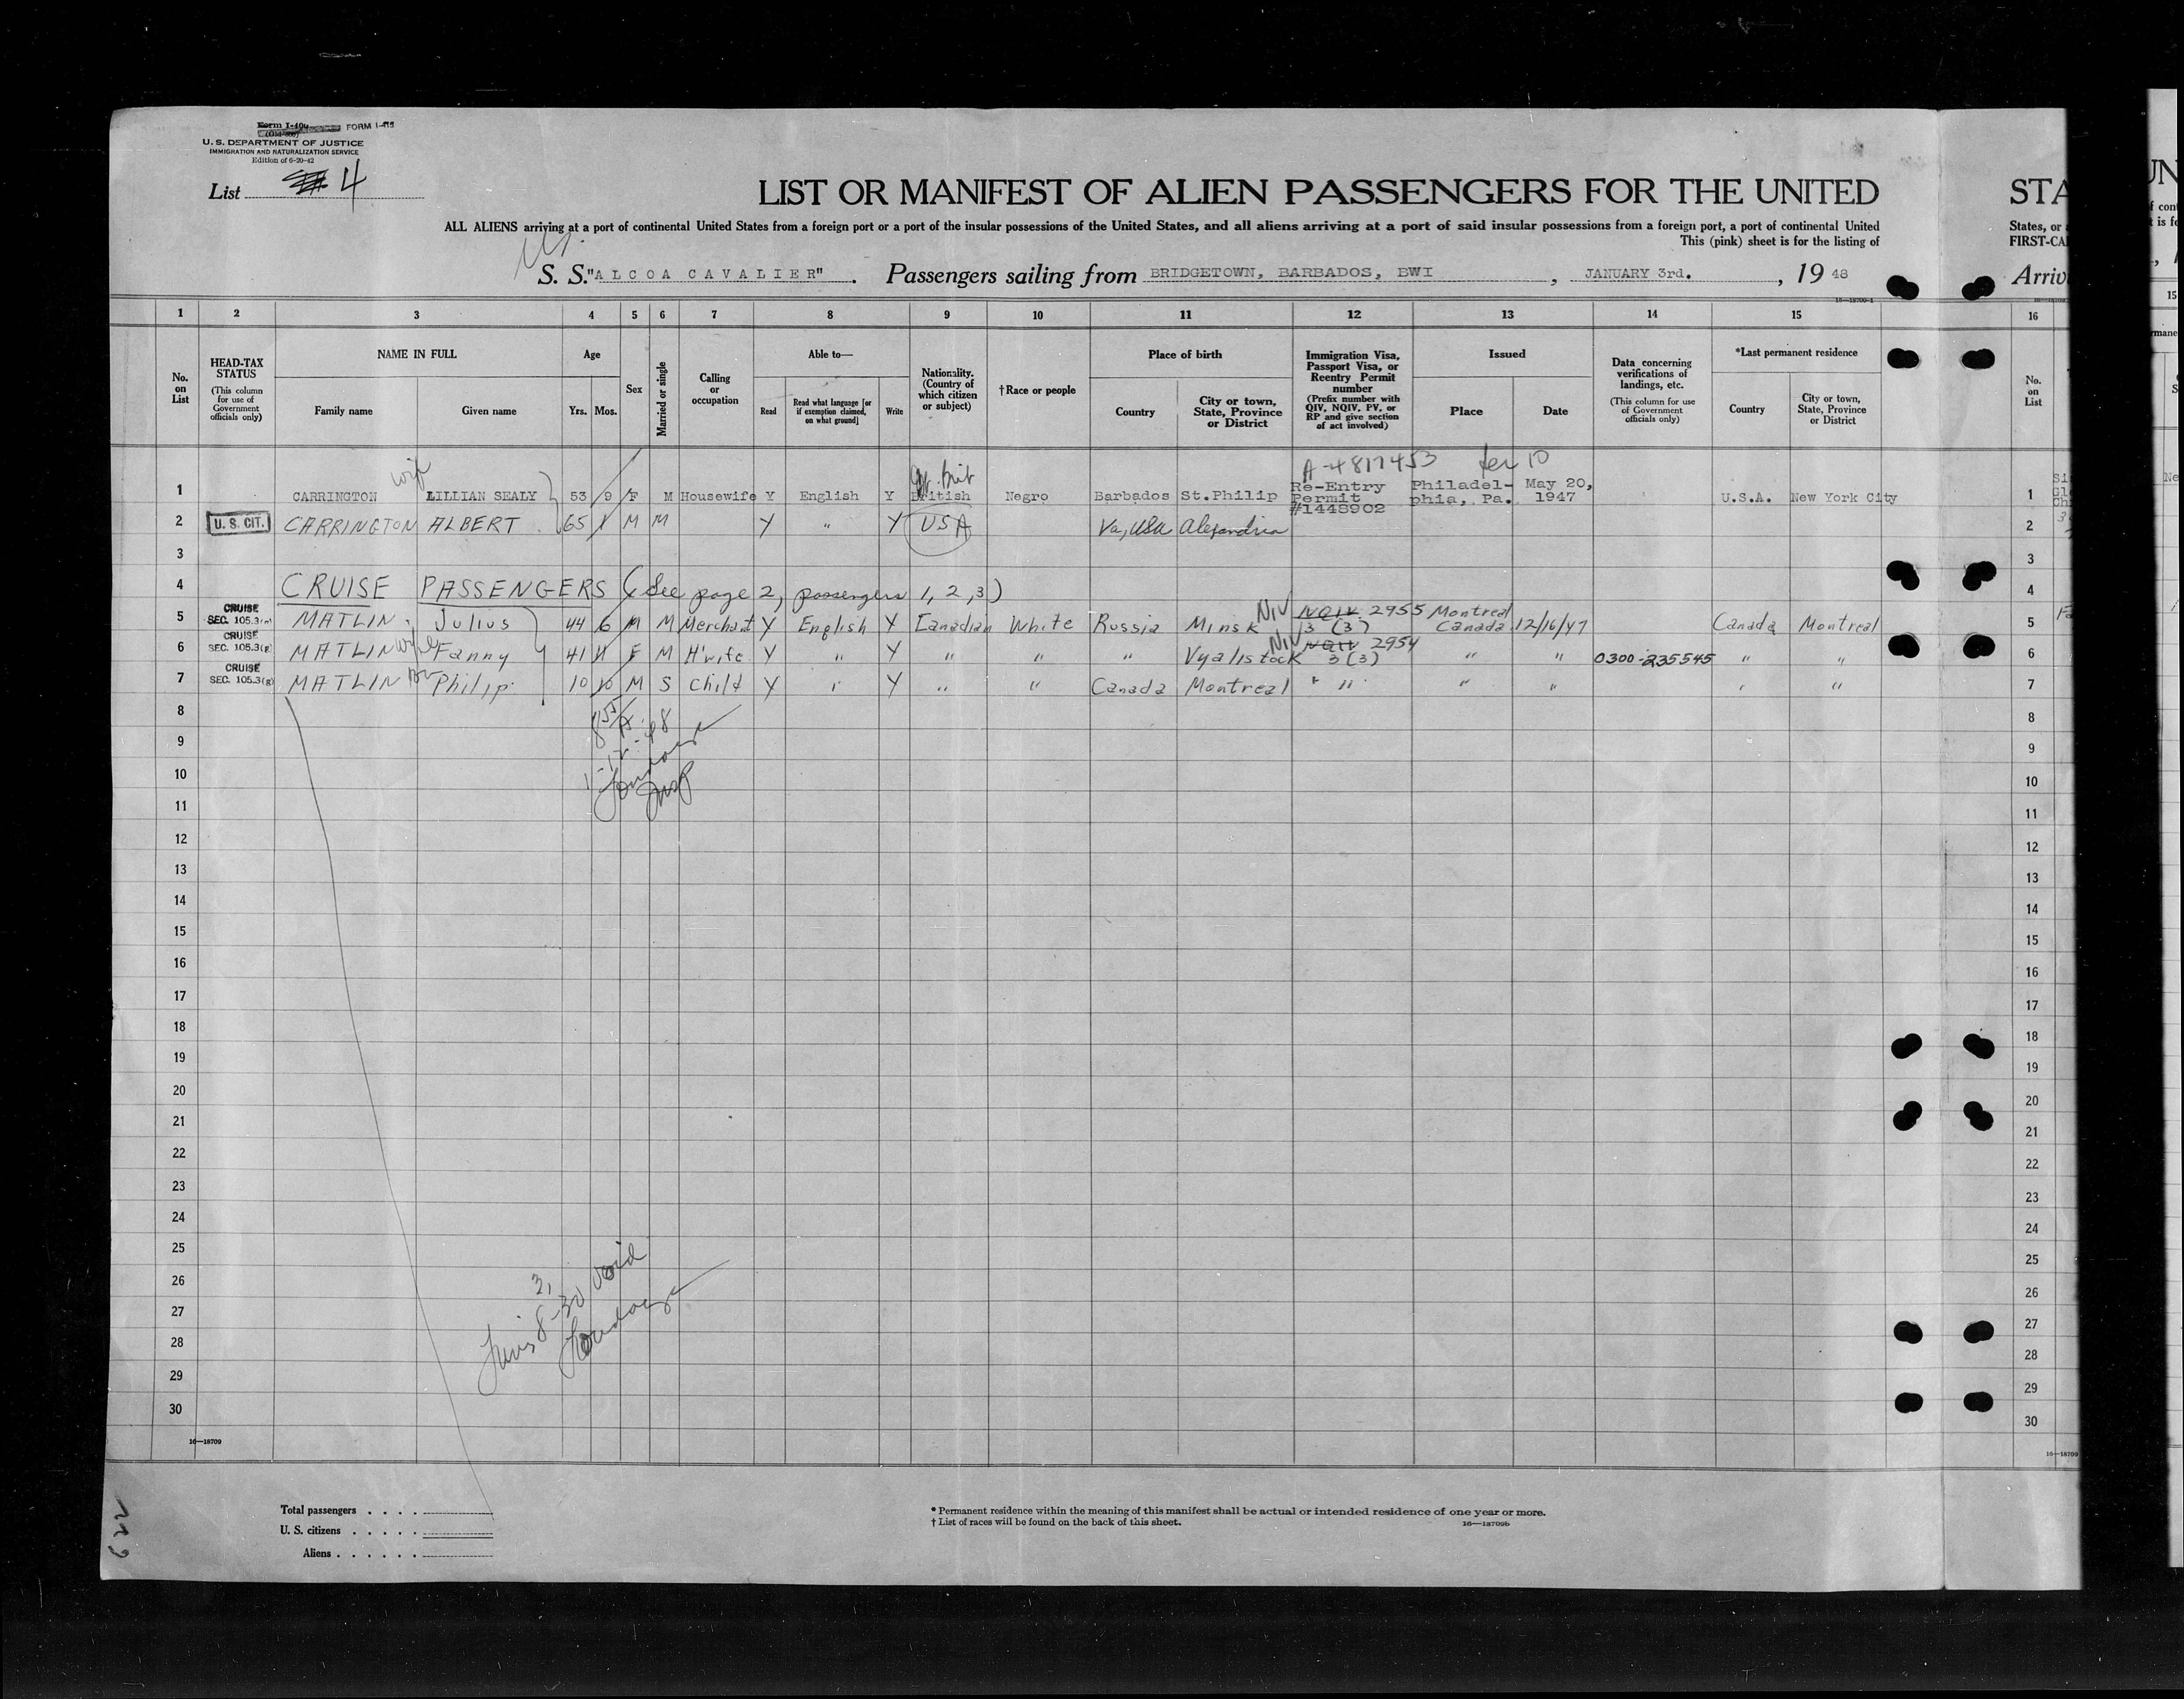 Form I-404 FORM I-415
(Old 500)
U. S. DEPARTMENT OF JUSTICE
IMMIGRATION AND NATURALIZATION SERVICE
Edition of 6-20-42
List 4
LIST OR MANIFEST OF ALIEN PASSENGERS FOR THE UNITED
STA
ALL ALIENS arriving at a port of continental United States from a foreign port or a port of the insular possessions of the United States, and all aliens arriving at a port of said insular possessions from a foreign port, a port of continental United
States, or
This (pink) sheet is for the listing of
FIRST-CA
S. S. "ALCOA CAVALIER". Passengers sailing from BRIDGETOWN, BARBADOS, BWI, JANUARY 3rd., 19 48
Arriv
1 2 3 4 5 6 7 8 9 10 11 12 13 14 15 16
No. on List
HEAD-TAX STATUS (This column for use of Government officials only)
NAME IN FULL
Family name Given name
Age
Yrs. Mos.
Sex
Married or single
Calling or occupation
Able to—
Read Read what language [or if exemption claimed, on what ground] Write
Nationality. (Country of which citizen or subject)
†Race or people
Place of birth
Country City or town, State, Province or District
Immigration Visa, Passport Visa, or Reentry Permit number (Prefix number with QIV, NQIV, PV, or RP and give section of act involved)
Issued
Place Date
Data concerning verifications of landings, etc. (This column for use of Government officials only)
*Last permanent residence
Country City or town, State, Province or District
No. on List
wife Gt. Brit A-4817453
1 CARRINGTON LILLIAN SEALY 53 9 F M Housewife Y English Y British Negro Barbados St.Philip Re-Entry Permit #1448902 Philadelphia, Pa. May 20, 1947 U.S.A. New York City 1
2 U. S. CIT. CARRINGTON ALBERT 65 M M Y " Y USA Va, USA Alexandria 2
3 3
4 CRUISE PASSENGERS (See page 2, passengers 1, 2, 3) 4
5 CRUISE SEC. 105.3(g) MATLIN Julius 44 6 M M Merchant Y English Y Canadian White Russia Minsk NIV NQIV 2955 3 (3) Montreal Canada 12/16/47 Canada Montreal 5
6 CRUISE SEC. 105.3(g) MATLIN wife Fanny 41 11 F M H'wife Y " Y " " " Vyalistock NIV NQIV 2954 3 (3) " " 0300-235545 " " 6
7 CRUISE SEC. 105.3(g) MATLIN Philip 10 10 M S Child Y " Y " " Canada Montreal " " " " " " 7
8 8
9 9
1-12-48
10 10
Insp
11 11
12 12
13 13
14 14
15 15
16 16
17 17
18 18
19 19
20 20
21 21
22 22
23 23
24 24
25 25
26 26
27 27
28 28
29 29
30 30
8-30 void
16—18709
16—18709
Total passengers
U. S. citizens
Aliens
* Permanent residence within the meaning of this manifest shall be actual or intended residence of one year or more.
† List of races will be found on the back of this sheet.
16—18709b